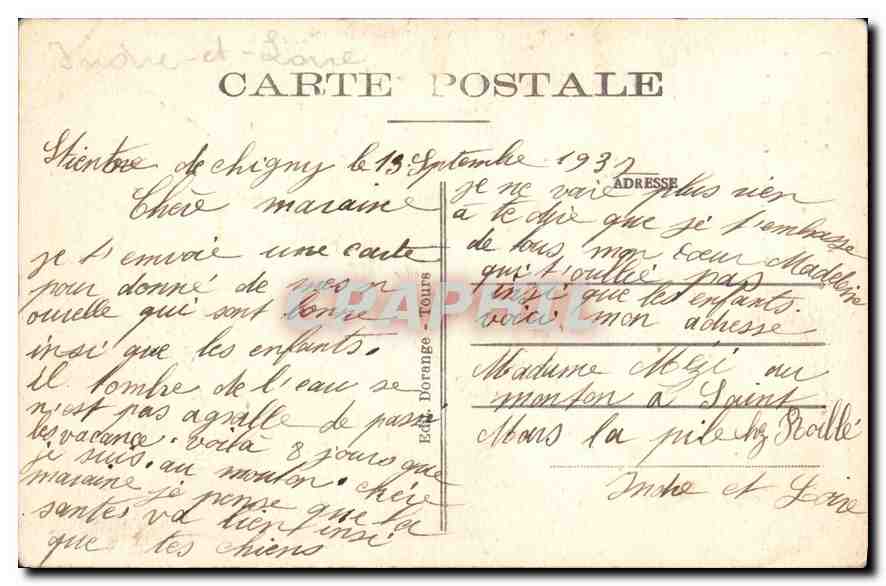 Indre-et-Loire
CARTE POSTALE
de chigny le 13 Septembre 1937
ADRESSE
Chere maraine
je t'envoie une carte
pour donné de mes n
ouvelle qui sont bonne
insi que les enfants.
il tombre de l'eau se
n'est pas agraille de passé
les vacance. voilà 8 jours que
je suis. au mouton. chére
maraine je pense que ta
sante va bien insi
que tes chiens
Edit. Dorange - Tours
je ne vois plus rien
à te dire que je t'embrasse
de tous mon cœur Madeleine
qui t'oullie pas
insi que les enfants.
voici mon adresse
Madame Mezi au
monton à Saint
Mars la pile chez Roillé
Indre et Loire
CPAPHIL